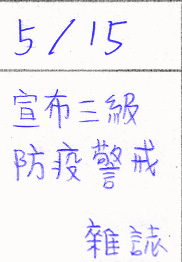 5/15
宣布三級
防疫警戒
雜誌